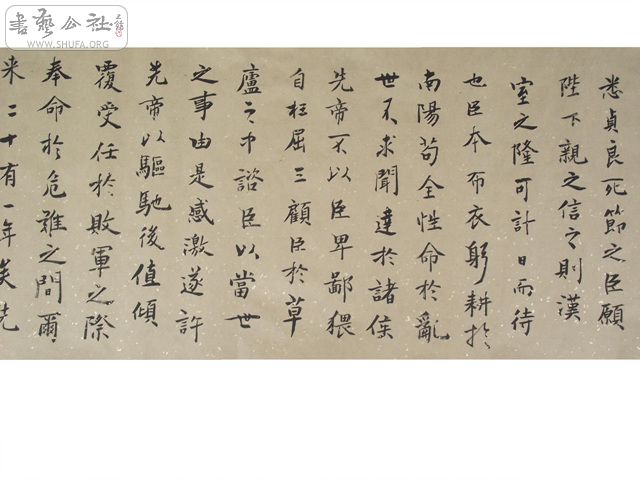 書藝公社
WWW.SHUFA.ORG
悉貞良死節之臣願
陛下親之信之則漢
室之隆可計日而待
也臣本布衣躬耕於
南陽苟全性命於亂
世不求聞達於諸侯
先帝不以臣卑鄙猥
自枉屈三顧臣於草
廬之中諮臣以當世
之事由是感激遂許
先帝以驅馳後值傾
覆受任於敗軍之際
奉命於危難之間爾
来二十有一年矣先